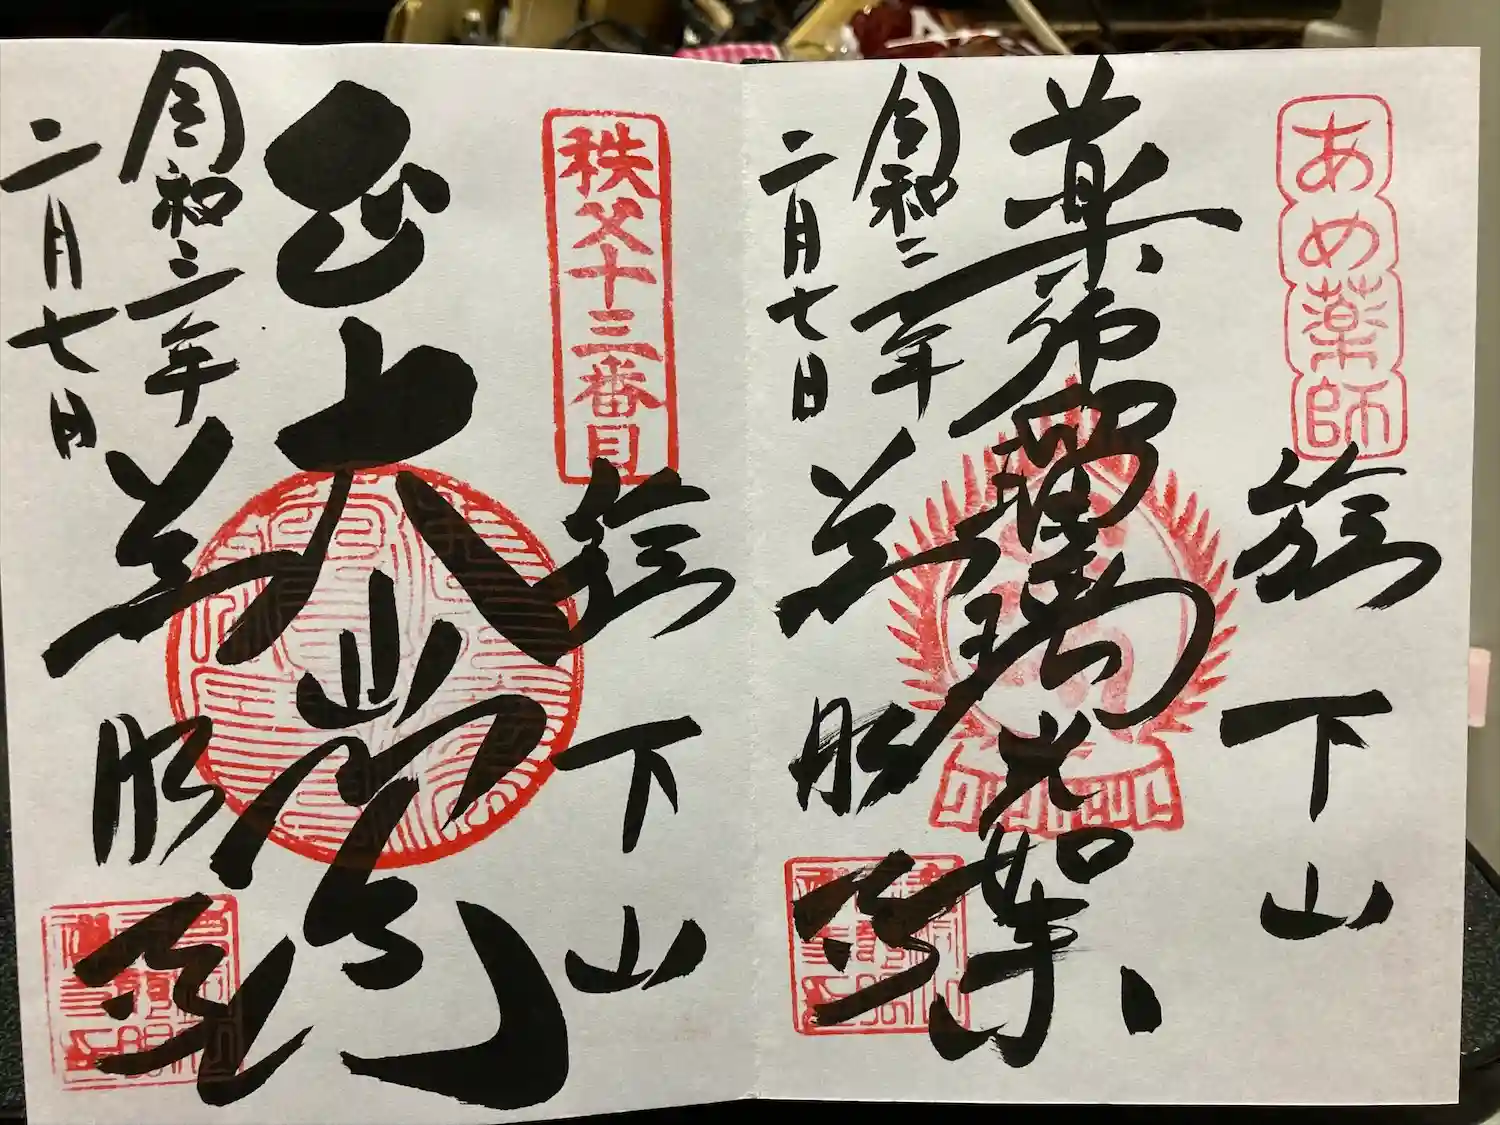 あめ薬師
旗下山
薬師瑠璃光如来
令和三年
二月七日
慈眼寺
秩父十三番目
旗下山
大
令和三年
二月七日
慈眼寺